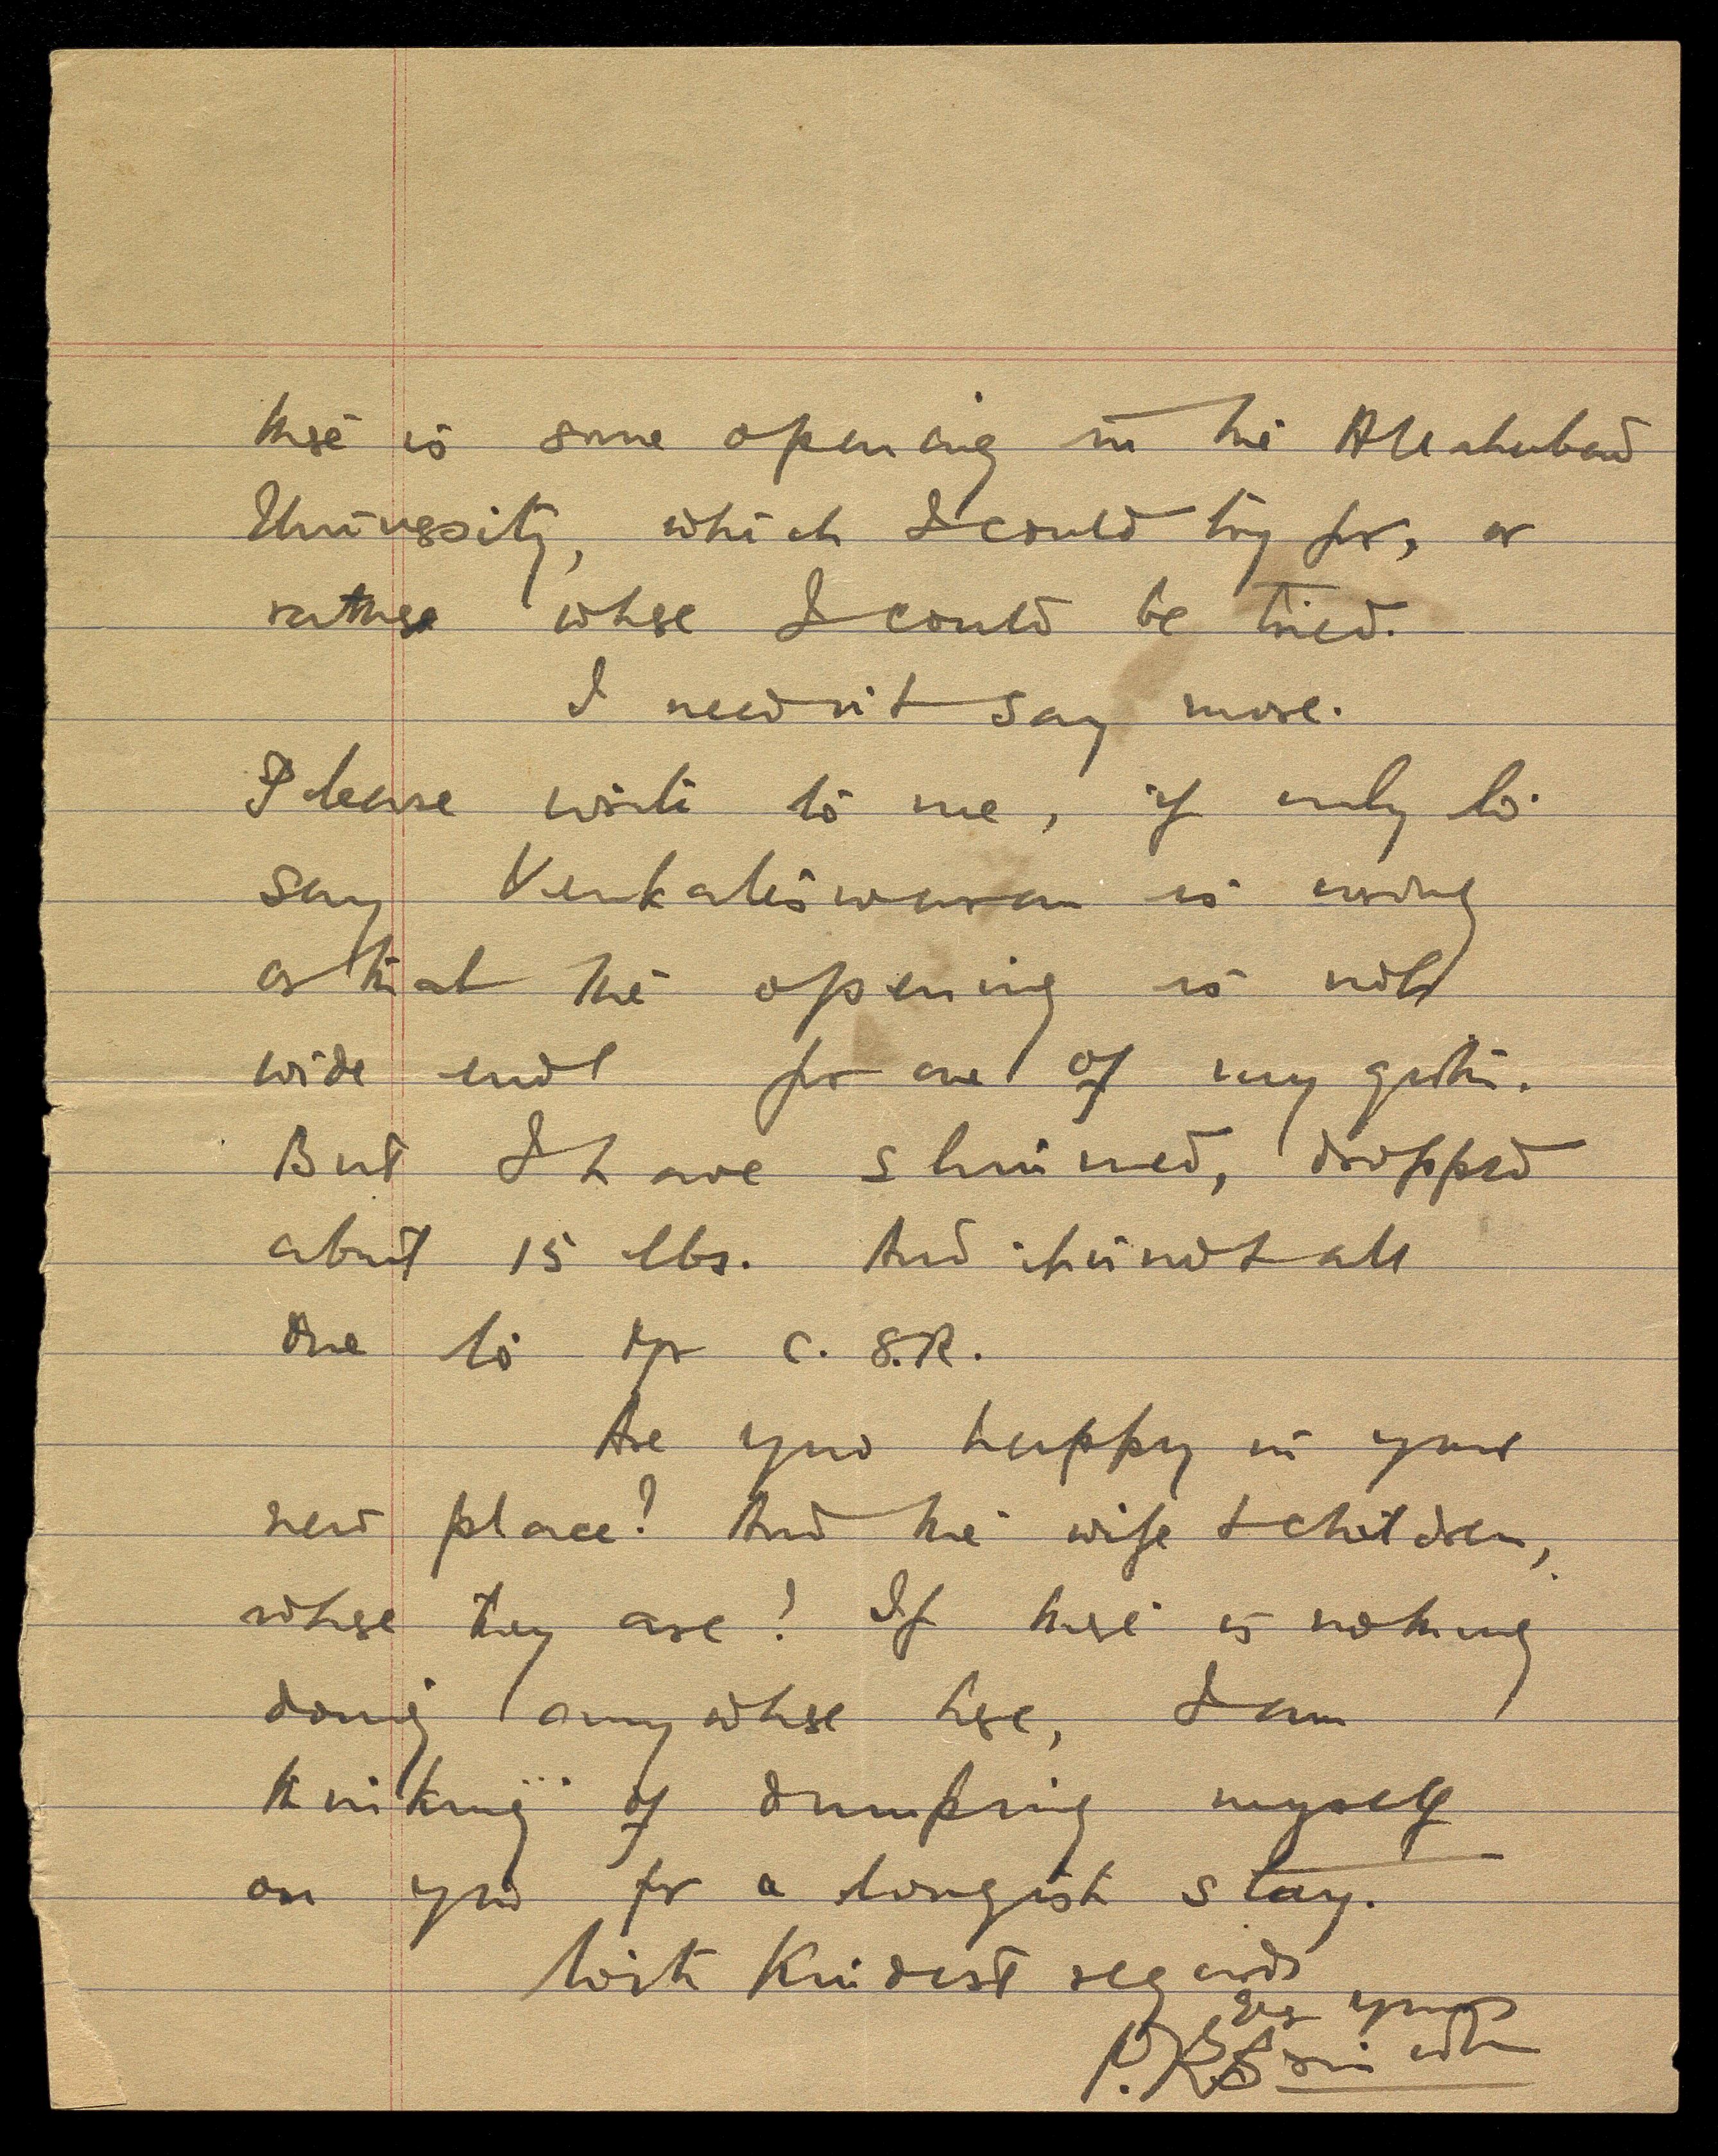 there is some opening in the Allahabad
University, which I could try for, or
rather where I could be tried.
I needn't say more.
Please write to me, if only to
say Venkateswaran is wrong
or that the opening is not
wide for one of my girth.
But I have slimmed, dropped
about 15 lbs. And it is not all
due to Dr C. S.R.
Are you happy in your
new place? And the wife & children,
where they are? If there is nothing
doing anywhere here, I am
thinking of dumping myself
on you for a longish stay.
With Kindest regards
Ever yours